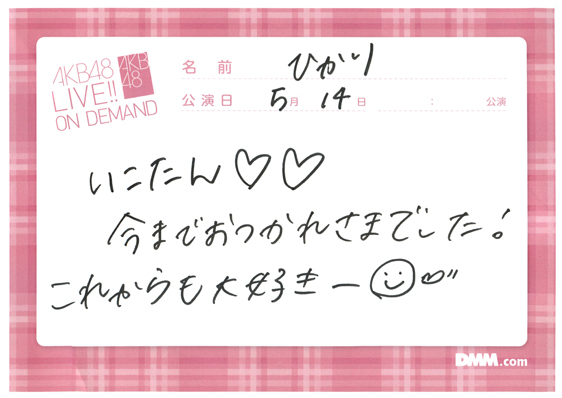 AKB48
LIVE!!
ON DEMAND
AKB
48
名前 ひかり
公演日 5月 14日 : 公演
いこたん♡♡
今までおつかれさまでした!
これからも大好きー
DMM.com